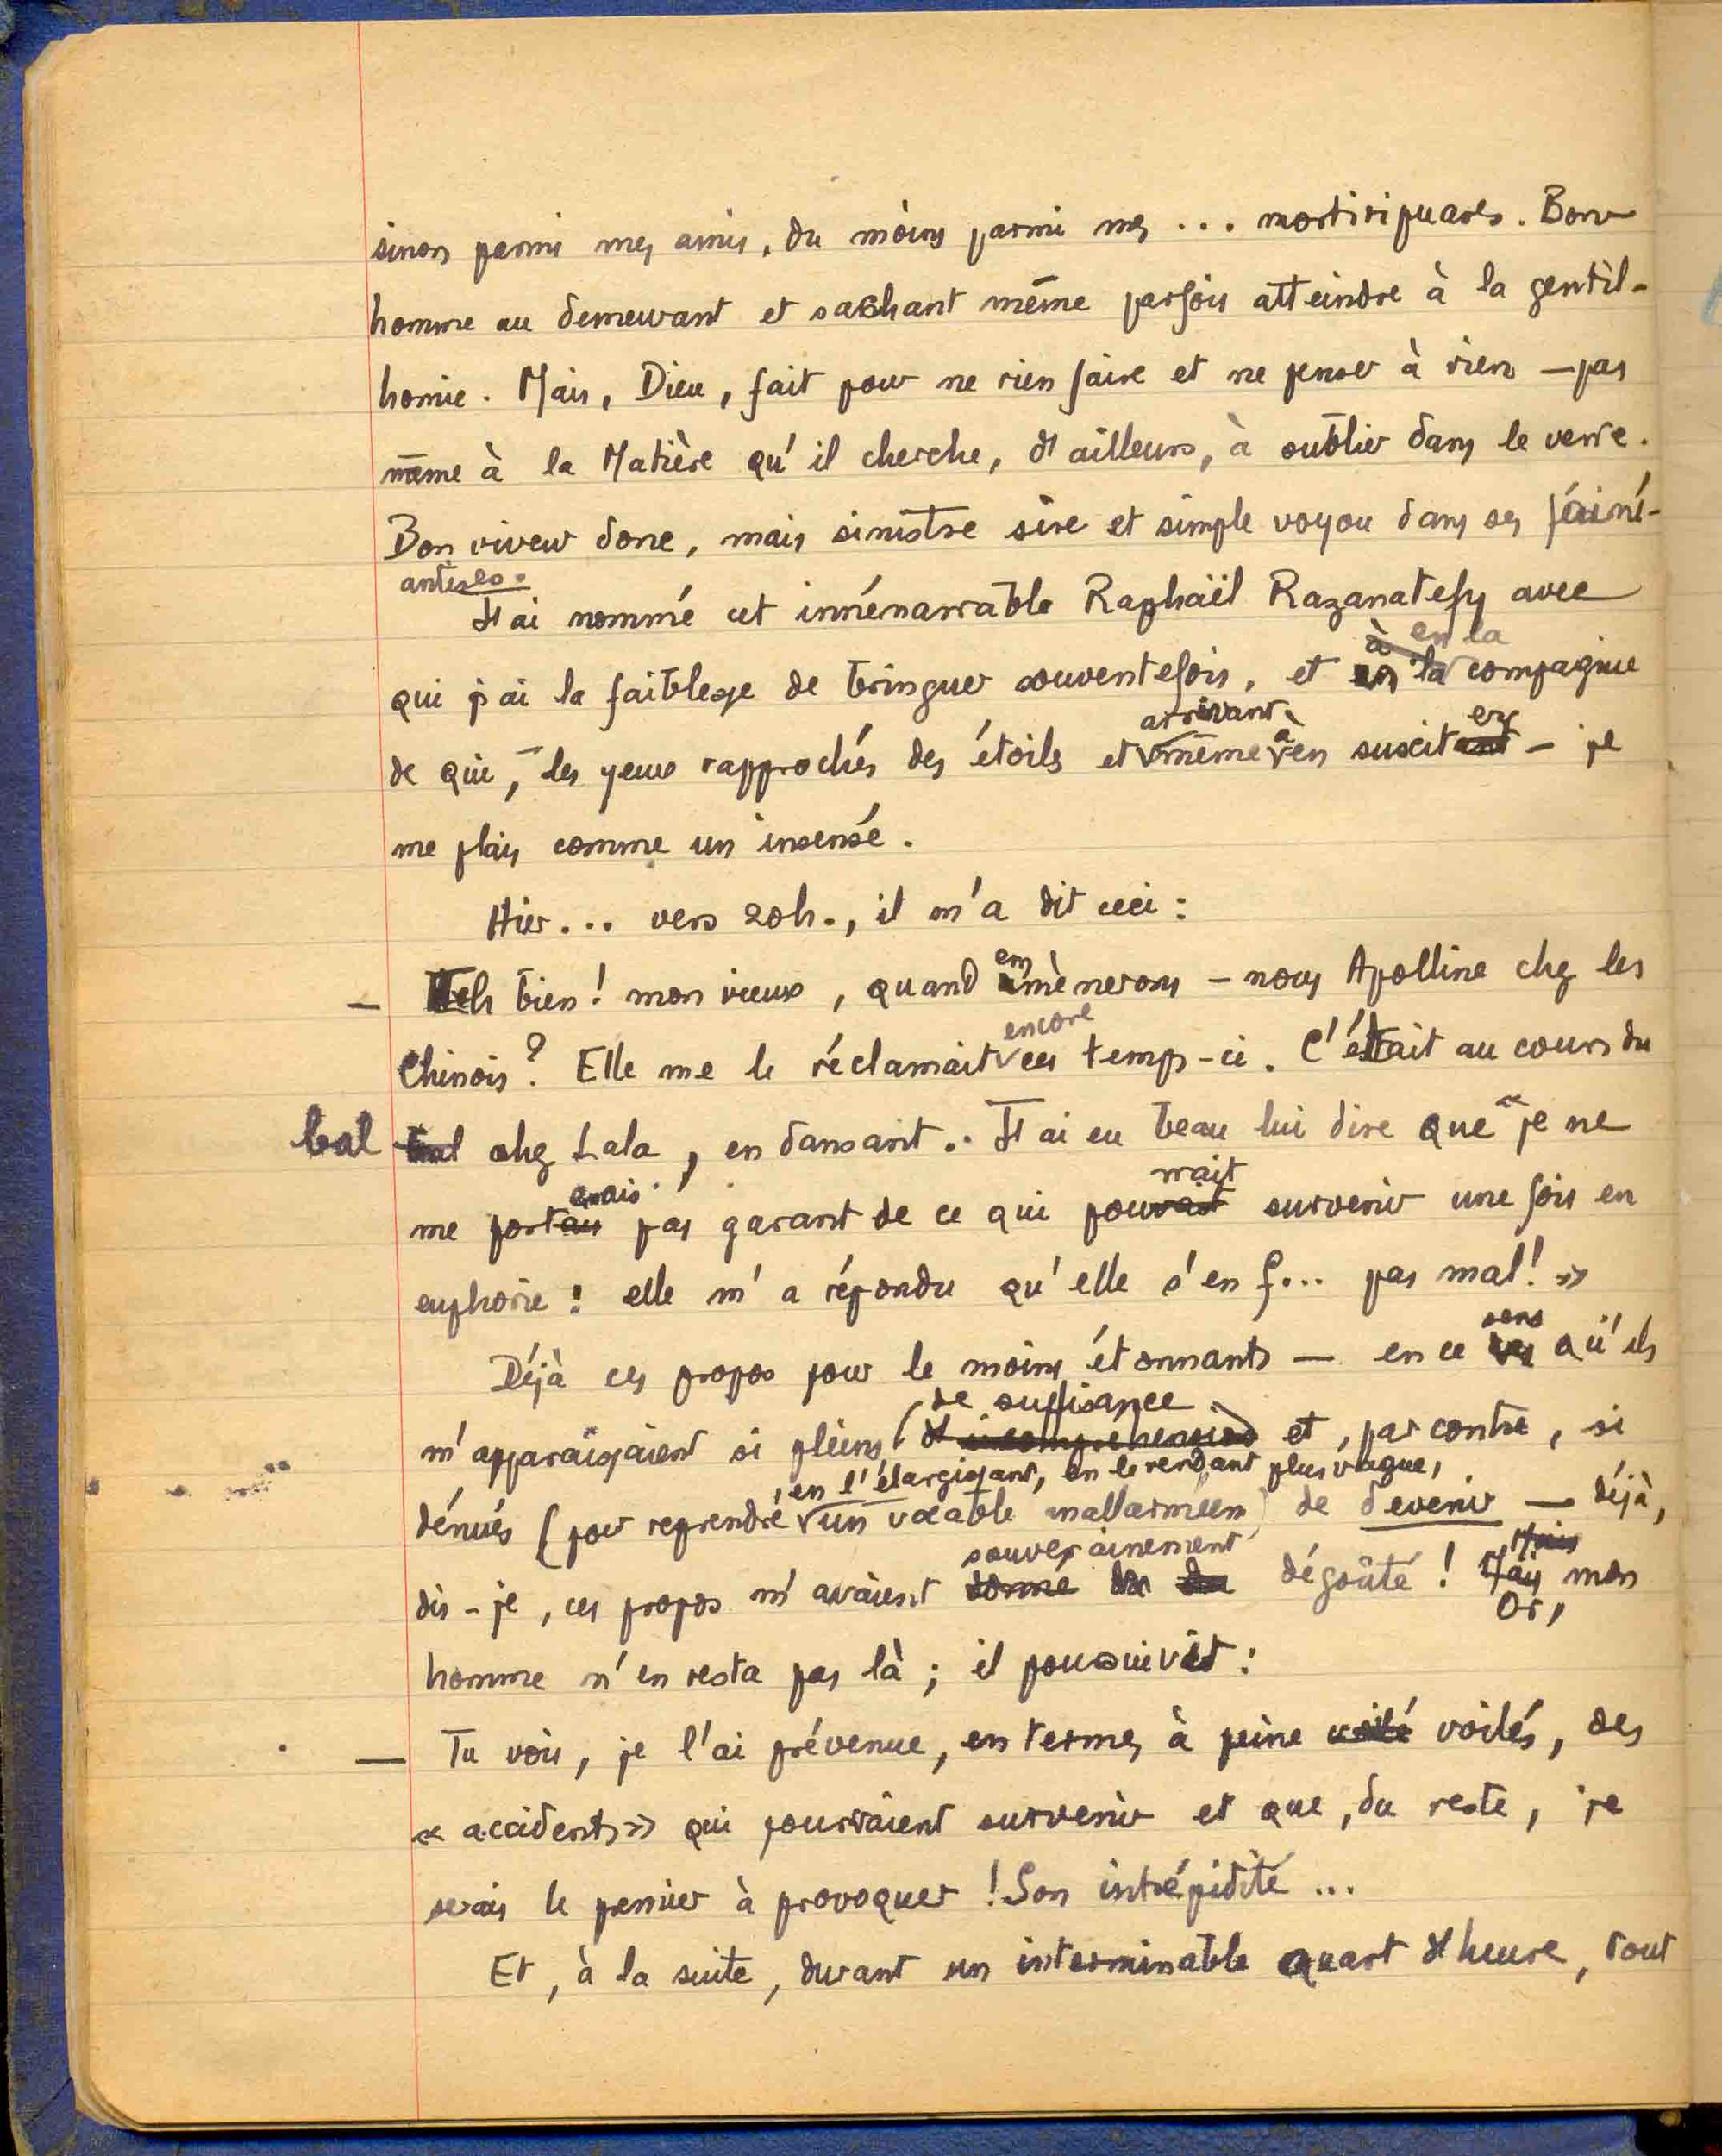 sinon parmi mes amis, du moins parmi mes ... mortiripuares. Bon
homme au demeurant et sachant même parfois atteindre à la gentil-
homie. Mais, Dieu, fait pour ne rien faire et ne penser à rien — pas
même à la Matière qu'il cherche, d'ailleurs, à oublier dans le verre.
Bon viveur donc, mais sinistre sire et simple voyou dans ses fainé-
antises.
J'ai nommé cet innénarrable Raphaël Razanatefy avec
à en la
qui j'ai la faiblesse de tringuer souventefois, et en la compagnie
arrivant à er
de qui, — les yeux rapprochés des étoiles et même en suscitant — je
me plais comme un insensé.
Hier... vers 20h., il m'a dit ceci :
em
— Eh bien ! mon vieux, quand amènerons-nous Apolline chez les
encore
Chinois ? Elle me le réclamait ces temps-ci. C'était au cours du
bal bal chez Lala, en dansant.. J'ai eu beau lui dire que « je ne
erais rrait
me portais pas garant de ce qui pouvait survenir une fois en
euphorie : elle m'a répondu qu'elle s'en f... pas mal ! »
sens
Déjà ces propos pour le moins étonnants — en ce qu'ils
de suffisance
m'apparaissaient si pleins d'incompréhension et, par contre, si
, en l'élargissant, en le rendant plus vague,
dénués (pour reprendre un vocable mallarméen) de devenir — déjà,
souverainement Mais
dis-je, ces propos m'avaient donné dégoûté ! Mais mon
Or,
homme n'en resta pas là ; il poursuivit :
— Tu vois, je l'ai prévenue, en termes à peine voilé voilés, des
« accidents » qui pourraient survenir et que, du reste, je
serais le premier à provoquer ! Son intrépidité ...
Et, à la suite, durant un interminable quart d'heure, tout